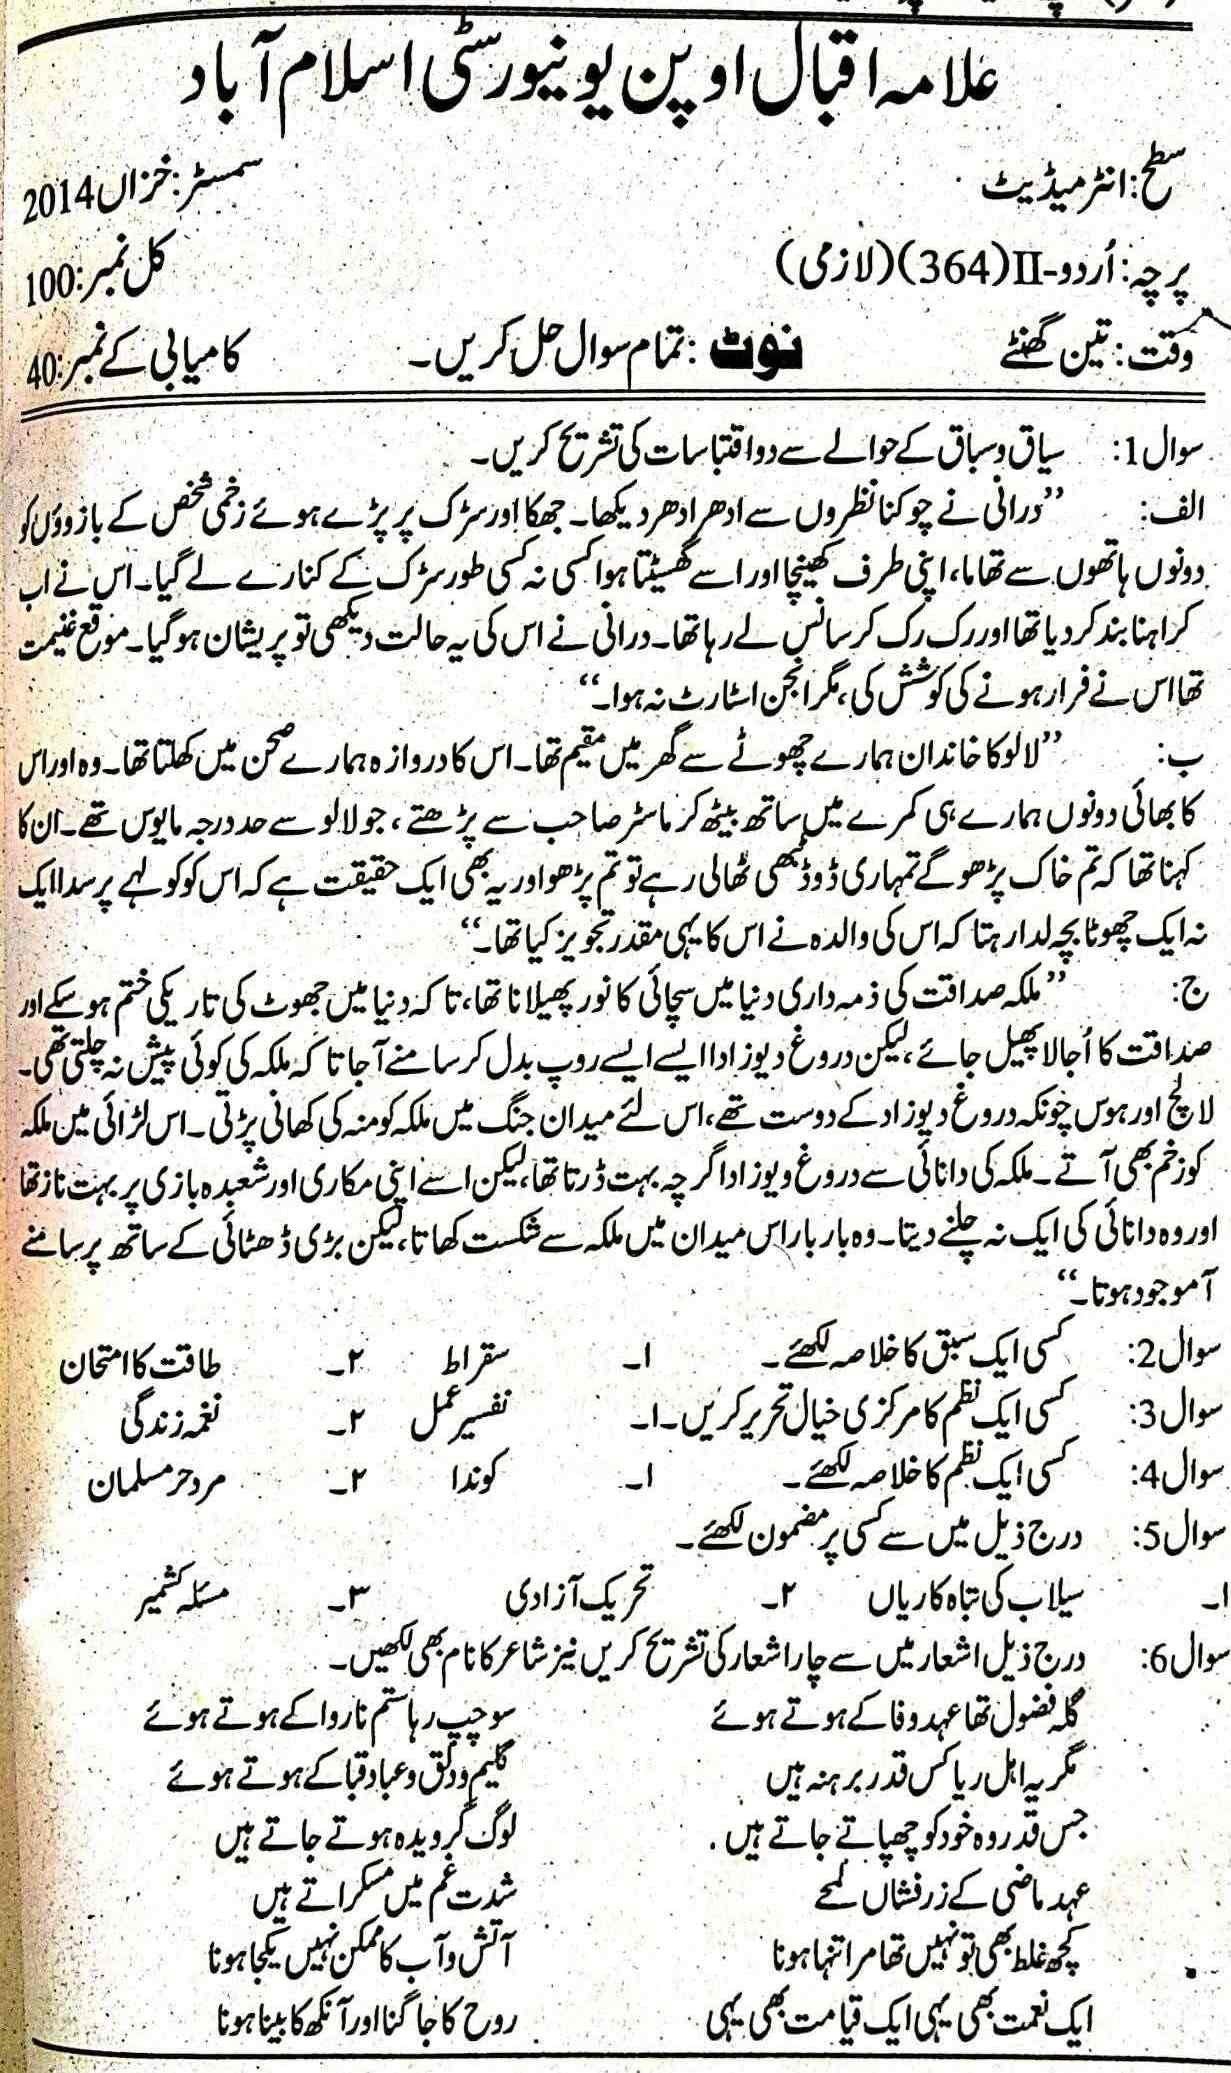 علامہ اقبال اوپن یونیورسٹی اسلام آباد
سطح: انٹرمیڈیٹ سمسٹر: خزاں 2014
پرچہ: اُردو-II (364) (لازمی) کل نمبر: 100
وقت: تین گھنٹے نوٹ: تمام سوال حل کریں۔ کامیابی کے نمبر: 40
سوال 1: سیاق و سباق کے حوالے سے دو اقتباسات کی تشریح کریں۔
الف: ”درانی نے چوکنا نظروں سے ادھر ادھر دیکھا۔ جھکا اور سڑک پر پڑے ہوئے زخمی شخص کے بازوؤں کو
دونوں ہاتھوں سے تھاما، اپنی طرف کھینچا اور اسے گھسیٹتا ہوا کسی نہ کسی طور سڑک کے کنارے لے گیا۔ اس نے اب
کراہنا بند کر دیا تھا اور رک رک کر سانس لے رہا تھا۔ درانی نے اس کی یہ حالت دیکھی تو پریشان ہو گیا۔ موقع غنیمت
تھا اس نے فرار ہونے کی کوشش کی، مگر انجن اسٹارٹ نہ ہوا۔“
ب: ”لالو کا خاندان ہمارے چھوٹے سے گھر میں مقیم تھا۔ اس کا دروازہ ہمارے صحن میں کھلتا تھا۔ وہ اور اس
کا بھائی دونوں ہمارے ہی کمرے میں ساتھ بیٹھ کر ماسٹر صاحب سے پڑھتے، جو لالو سے حد درجہ مایوس تھے۔ ان کا
کہنا تھا کہ تم خاک پڑھو گے تمہاری ڈوڈبھی ٹھالی رہے تو تم پڑھو اور یہ بھی ایک حقیقت ہے کہ اس کو کولہے پر سدا ایک
نہ ایک چھوٹا بچہ لدا رہتا کہ اس کی والدہ نے اس کا یہی مقدر تجویز کیا تھا۔“
ج: ”ملکہ صداقت کی ذمہ داری دنیا میں سچائی کا نور پھیلانا تھا، تاکہ دنیا میں جھوٹ کی تاریکی ختم ہو سکے اور
صداقت کا اُجالا پھیل جائے، لیکن دروغ دیوزاد ایسے ایسے روپ بدل کر سامنے آ جاتا کہ ملکہ کی کوئی پیش نہ چلتی تھی۔
لالچ اور ہوس چونکہ دروغ دیوزاد کے دوست تھے، اس لئے میدان جنگ میں ملکہ کو منہ کی کھانی پڑتی۔ اس لڑائی میں ملکہ
کو زخم بھی آتے۔ ملکہ کی دانائی سے دروغ ویوزاد اگرچہ بہت ڈرتا تھا، لیکن اسے اپنی مکاری اور شعبدہ بازی پر بہت ناز تھا
اور وہ دانائی کی ایک نہ چلنے دیتا۔ وہ بار بار اس میدان میں ملکہ سے شکست کھاتا، لیکن بڑی ڈھٹائی کے ساتھ پر سامنے
آ موجود ہوتا۔“
سوال 2: کسی ایک سبق کا خلاصہ لکھئے۔ ۱۔ سقراط ۲۔ طاقت کا امتحان
سوال 3: کسی ایک نظم کا مرکزی خیال تحریر کریں۔ ۱۔ نفسیر عمل ۲۔ نغمہ زندگی
سوال 4: کسی ایک نظم کا خلاصہ لکھئے۔ ۱۔ کوندا ۲۔ مرد حر مسلمان
سوال 5: درج ذیل میں سے کسی پر مضمون لکھئے۔
۱۔ سیلاب کی تباہ کاریاں ۲۔ تحریک آزادی ۳۔ مسئلہ کشمیر
سوال 6: درج ذیل اشعار میں سے چار اشعار کی تشریح کریں نیز شاعر کا نام بھی لکھیں۔
گلہ فضول تھا عہد وفا کے ہوتے ہوئے سو چپ رہا ستم ناروا کے ہوتے ہوئے
مگر یہ اہل ریا کس قدر برہنہ ہیں گلیم و دلق و عبا و قبا کے ہوتے ہوئے
جس قدر وہ خود کو چھپاتے جاتے ہیں لوگ گرویدہ ہوتے جاتے ہیں
عہد ماضی کے زرفشاں لمحے شدت غم میں مسکراتے ہیں
کچھ غلط بھی تو نہیں تھا مرا تنہا ہونا آتش و آب کا ممکن نہیں یکجا ہونا
ایک نعمت بھی یہی ایک قیامت بھی یہی روح کا جاگنا اور آنکھ کا بینا ہونا